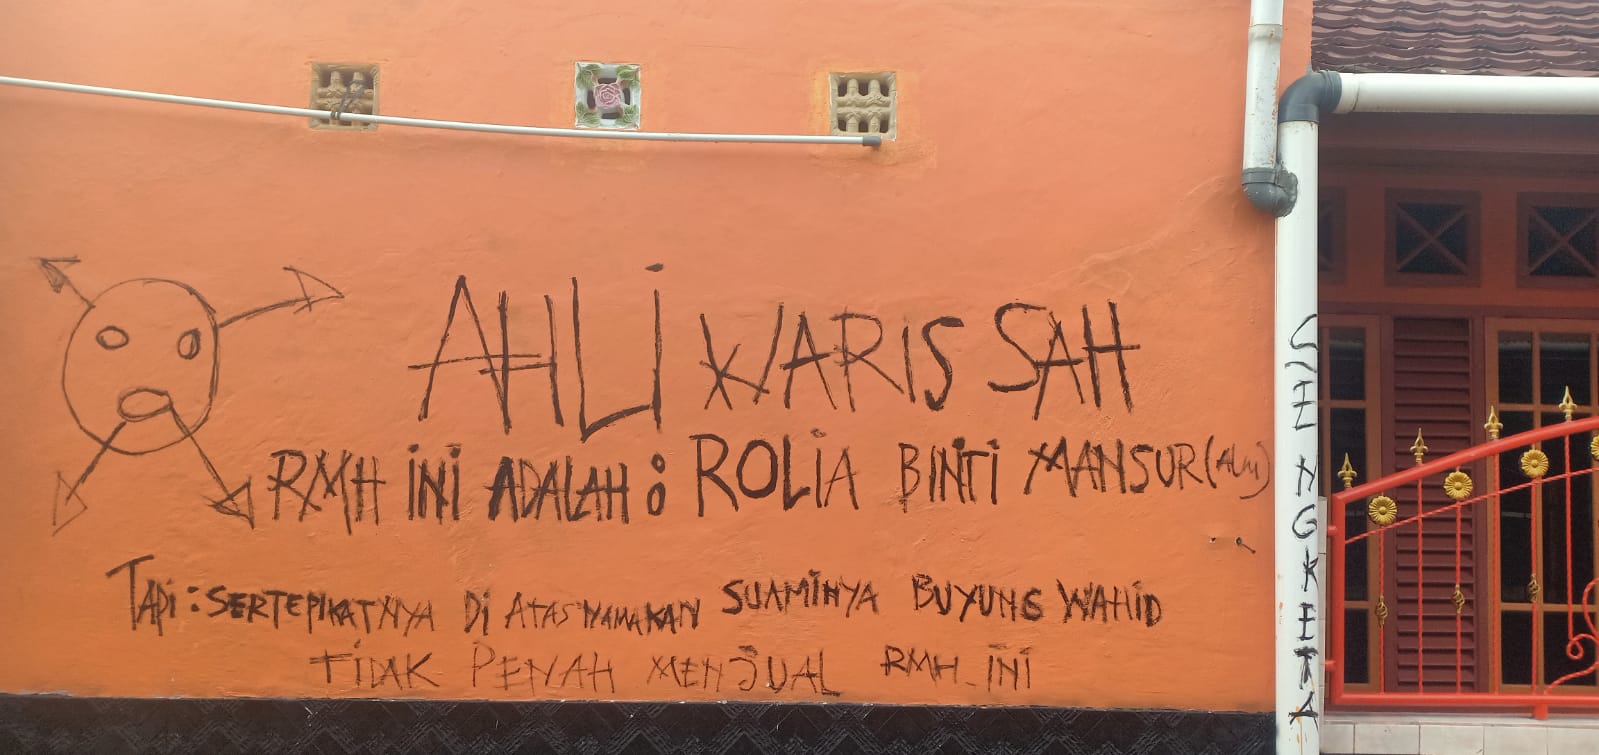 AHLi WARIS SAH
RMH iNi ADALAH : ROLiA BINTi MANSUR (ALM)
TAPi : SERTEPIKATNYA Di ATAS NAMAKAN SUAMiNYA BUYUNG WAHiD
TiDAK PENAH MENJUAL RMH iNi
SENGKETA